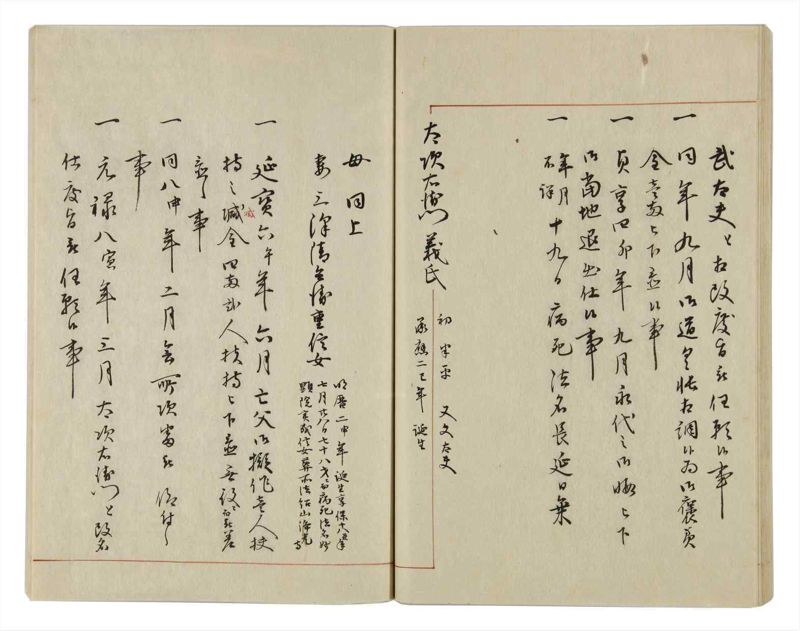 武右夫と相改度旨願任願候事
一 同年九月御道具帳相調候為御褒美
金壱両被下置候事
一 貞享四卯年九月永代之御暇被下
御当地退出仕候事
一 年月不詳 十九日病死法名長延日乗
太次右衛門義氏 初半平 又文右夫
承応二巳年誕生
母 同上
妻 三沢清兵衛重信女 明暦二申年誕生享保十八丑年
七月廿八日七十八才ニ而病死法名
顕院 信女葬所法紹山浄光寺
一 延宝六午年六月亡父御擬作壱人扶
持之減金四両弐人扶持被下置
候事
一 同八申年二月会所次番被仰付候
事
一 元禄八亥年三月太次右衛門と改名
仕度旨願任願候事